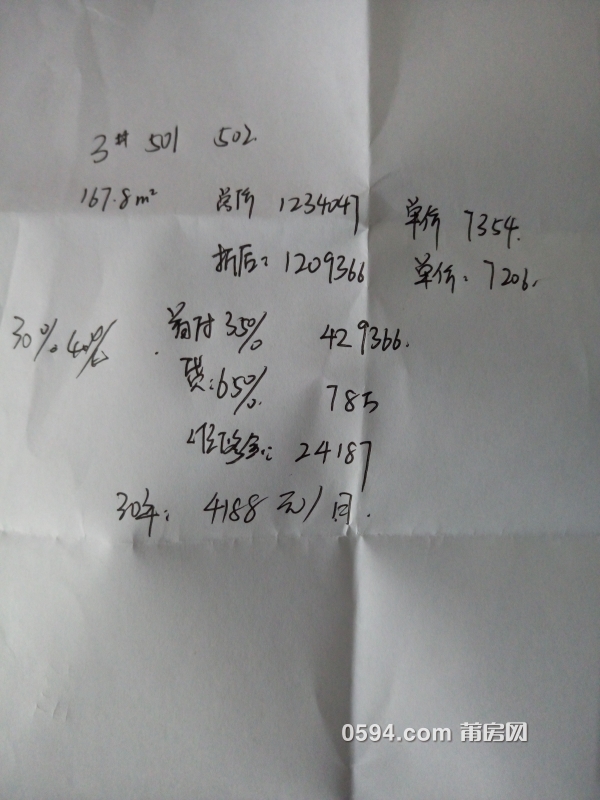 3# 501 502
167.8m² 总价 1234047 单价 7354.
折后: 1209366 单价: 7206.
30% 40% 首付35% 429366.
贷:65% 785
维修金: 24187
30年: 4188元/月.
0594.com 莆房网